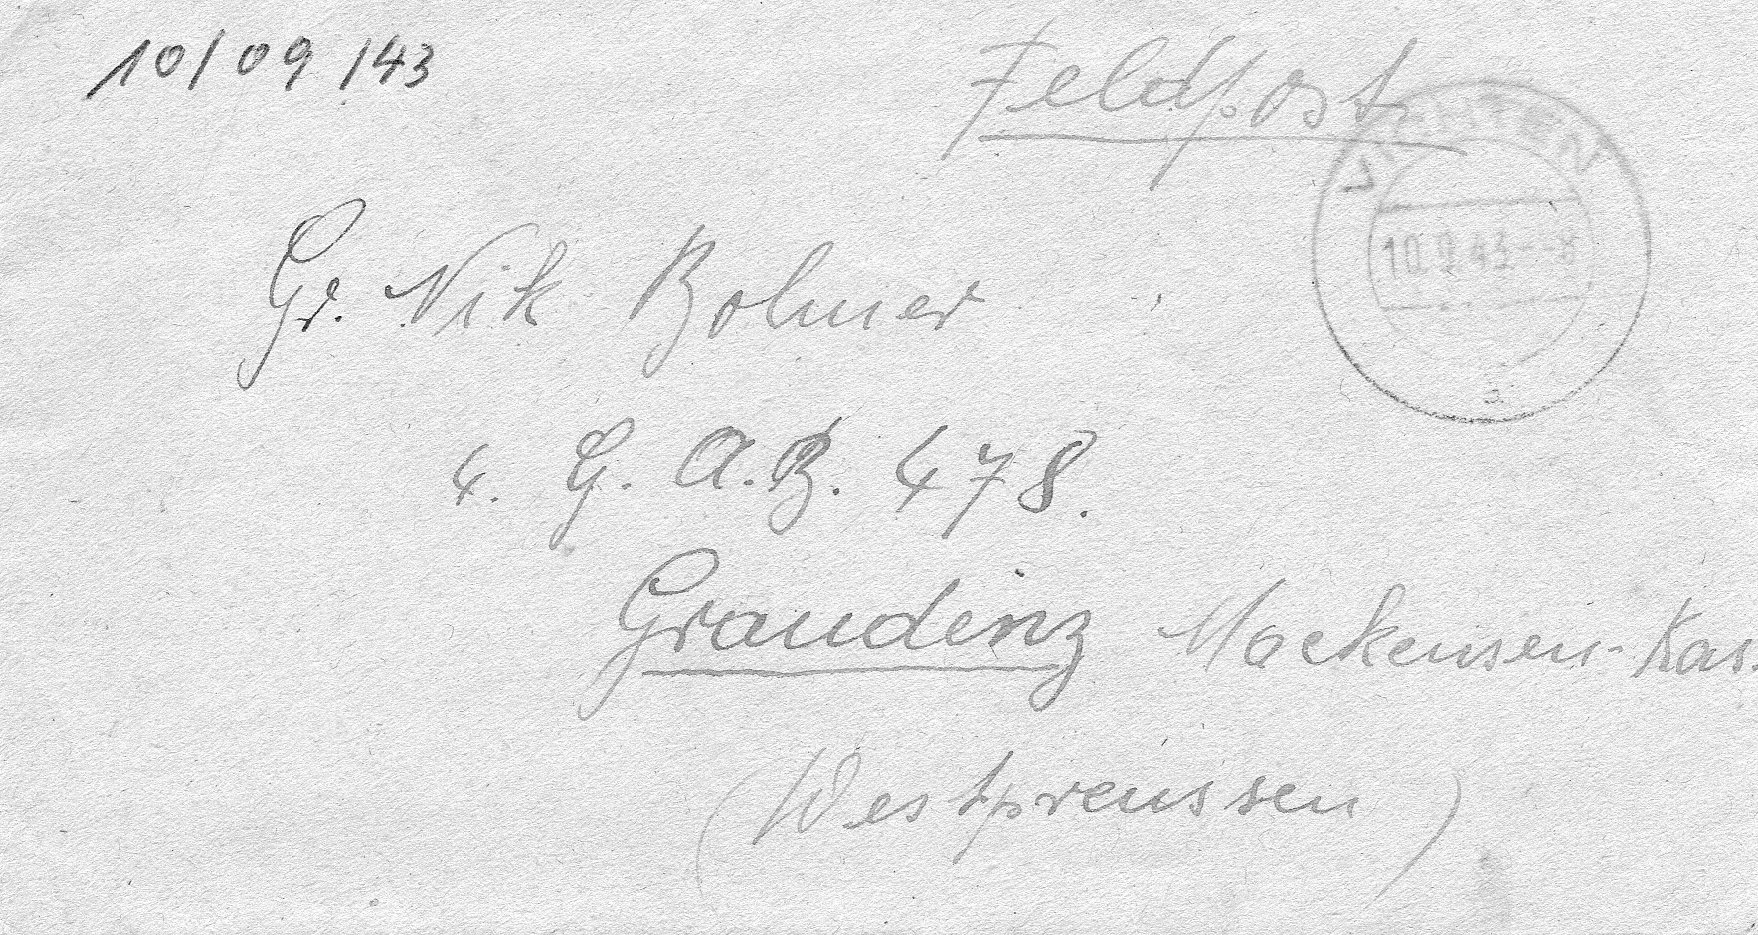 10/09/43
Feldpost
10.9.43--8
Gr. Nik Bolmer
4. G. A. B. 478.
Graudenz Mackensen-Kas.
(Westpreussen)